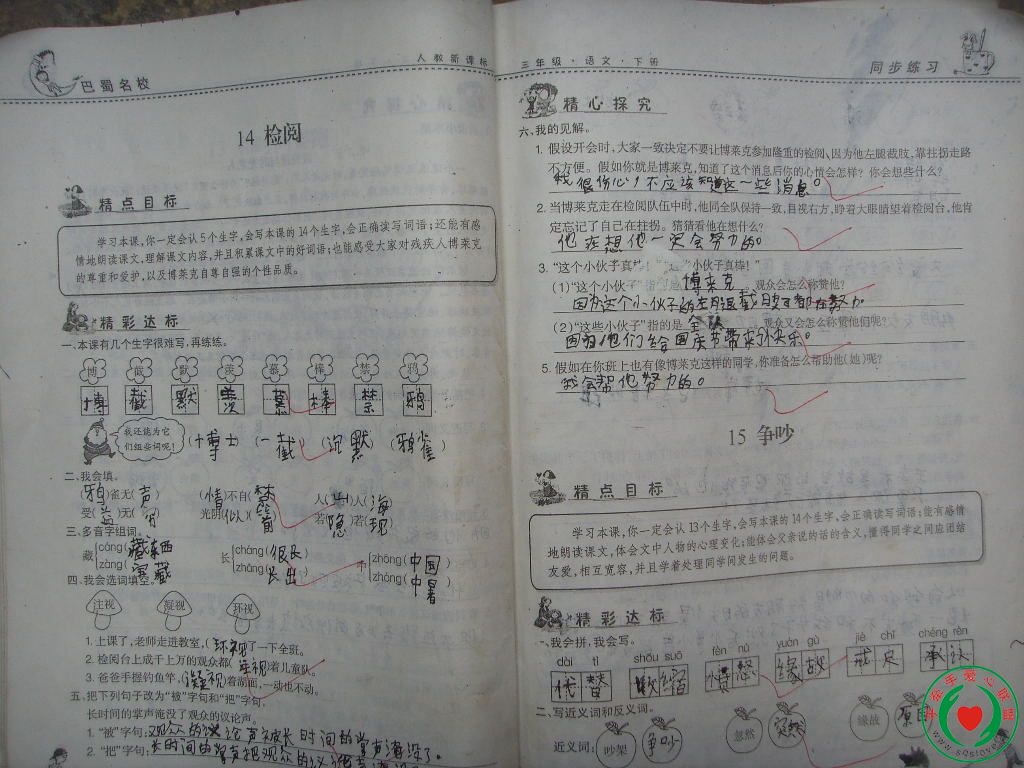 巴蜀名校
人教新课标
14 检阅
精点目标
学习本课,你一定会认5个生字,会写本课的14个生字,会正确读写词语;还能有感
情地朗读课文,理解课文内容,并且积累课文中的好词语;也能感受大家对残疾人博莱克
的尊重和爱护,以及博莱克自尊自强的个性品质。
精彩达标
一、本课有几个生字很难写,再练练。
博 截 默 羡 慕 棒 禁 鸦
博 截 默 羡 慕 棒 禁 鸦
我还能为它
们组些词呢!
(博士) (一截) (沉默) (鸦雀)
二、我会填。
(鸦)雀无(声) (情)不自(禁) 人(山)人(海)
受(益)无(穷) 光阴(似)(箭) 若(隐)若(现)
三、多音字组词。
藏 cáng(藏东西) 长 cháng(很长) 中 zhōng(中国)
zàng(宝藏) zhǎng(长出) zhòng(中暑)
四、我会选词填空。
注视 凝视 环视
1. 上课了,老师走进教室,(环视)了一下全班。
2. 检阅台上成千上万的观众都(注视)着儿童队。
3. 爸爸手握钓鱼竿,(凝视)着湖面,一动也不动。
五、把下列句子改为“被”字句和“把”字句。
长时间的掌声淹没了观众的议论声。
1. “被”字句:观众的议论声被长时间的掌声淹没了。
2. “把”字句:长时间的掌声把观众的议论
三年级·语文·下册
同步练习
精心探究
六、我的见解。
1. 假设开会时,大家一致决定不要让博莱克参加隆重的检阅、因为他左腿截肢,靠拄拐走路
不方便。假如你就是博莱克,知道了这个消息后你的心情会怎样?你会想些什么?
我很伤心,不应该知道这一些消息。
2. 当博莱克走在检阅队伍中时,他同全队保持一致,目视右方,睁着大眼睛望着检阅台,他肯
定忘记了自己在拄拐。猜猜看他在想什么?
他在想他一定会努力的。
3. “这个小伙子真棒!”“这些小伙子真棒!”
(1)“这个小伙子”指的是 博莱克 。观众会怎么称赞他?
因为这个小伙子的
(2)“这些小伙子”指的是 全队 。观众又会怎么称赞他们呢?
因为他们给国庆节带来了快乐。
5. 假如在你班上也有像博莱克这样的同学,你准备怎么帮助他(她)呢?
我会帮他努力的。
15 争吵
精点目标
学习本课,你一定会认13个生字,会写本课的14个生字,会正确读写词语;能有感情
地朗读课文,体会文中人物的心理变化;能体会父亲说的话的含义,懂得同学之间应团结
友爱,相互宽容,并且学着处理同学间发生的问题。
精彩达标
一、我会拼,我会写。
dài tì shōu suō fèn nù yuán gù jiè chǐ chéng rèn
代替 收缩 愤怒 缘故 戒尺 承认
二、写近义词和反义词。
近义词: 吵架 争吵 忽然 突然 缘故 原因